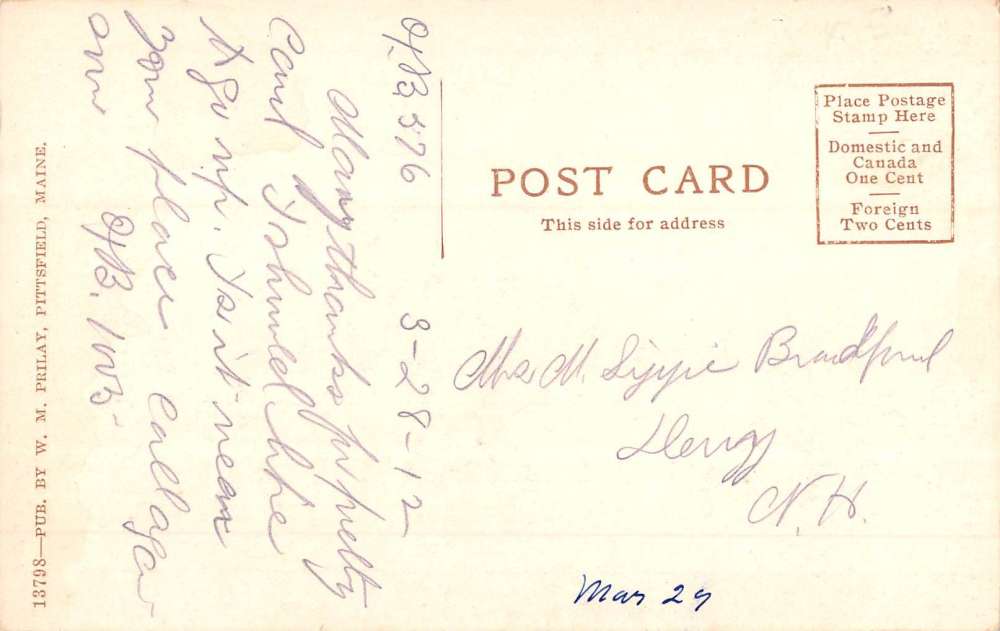 376 3-28-12
Many thanks for pretty
Card I should like
to go up. Is it near
your place call again
soon
POST CARD
This side for address
Place Postage
Stamp Here
Domestic and
Canada
One Cent
Foreign
Two Cents
Mrs M. Lizzie Bradford
Derry
N.H.
Mar 29
13798—PUB. BY W. M. PRILAY, PITTSFIELD, MAINE.